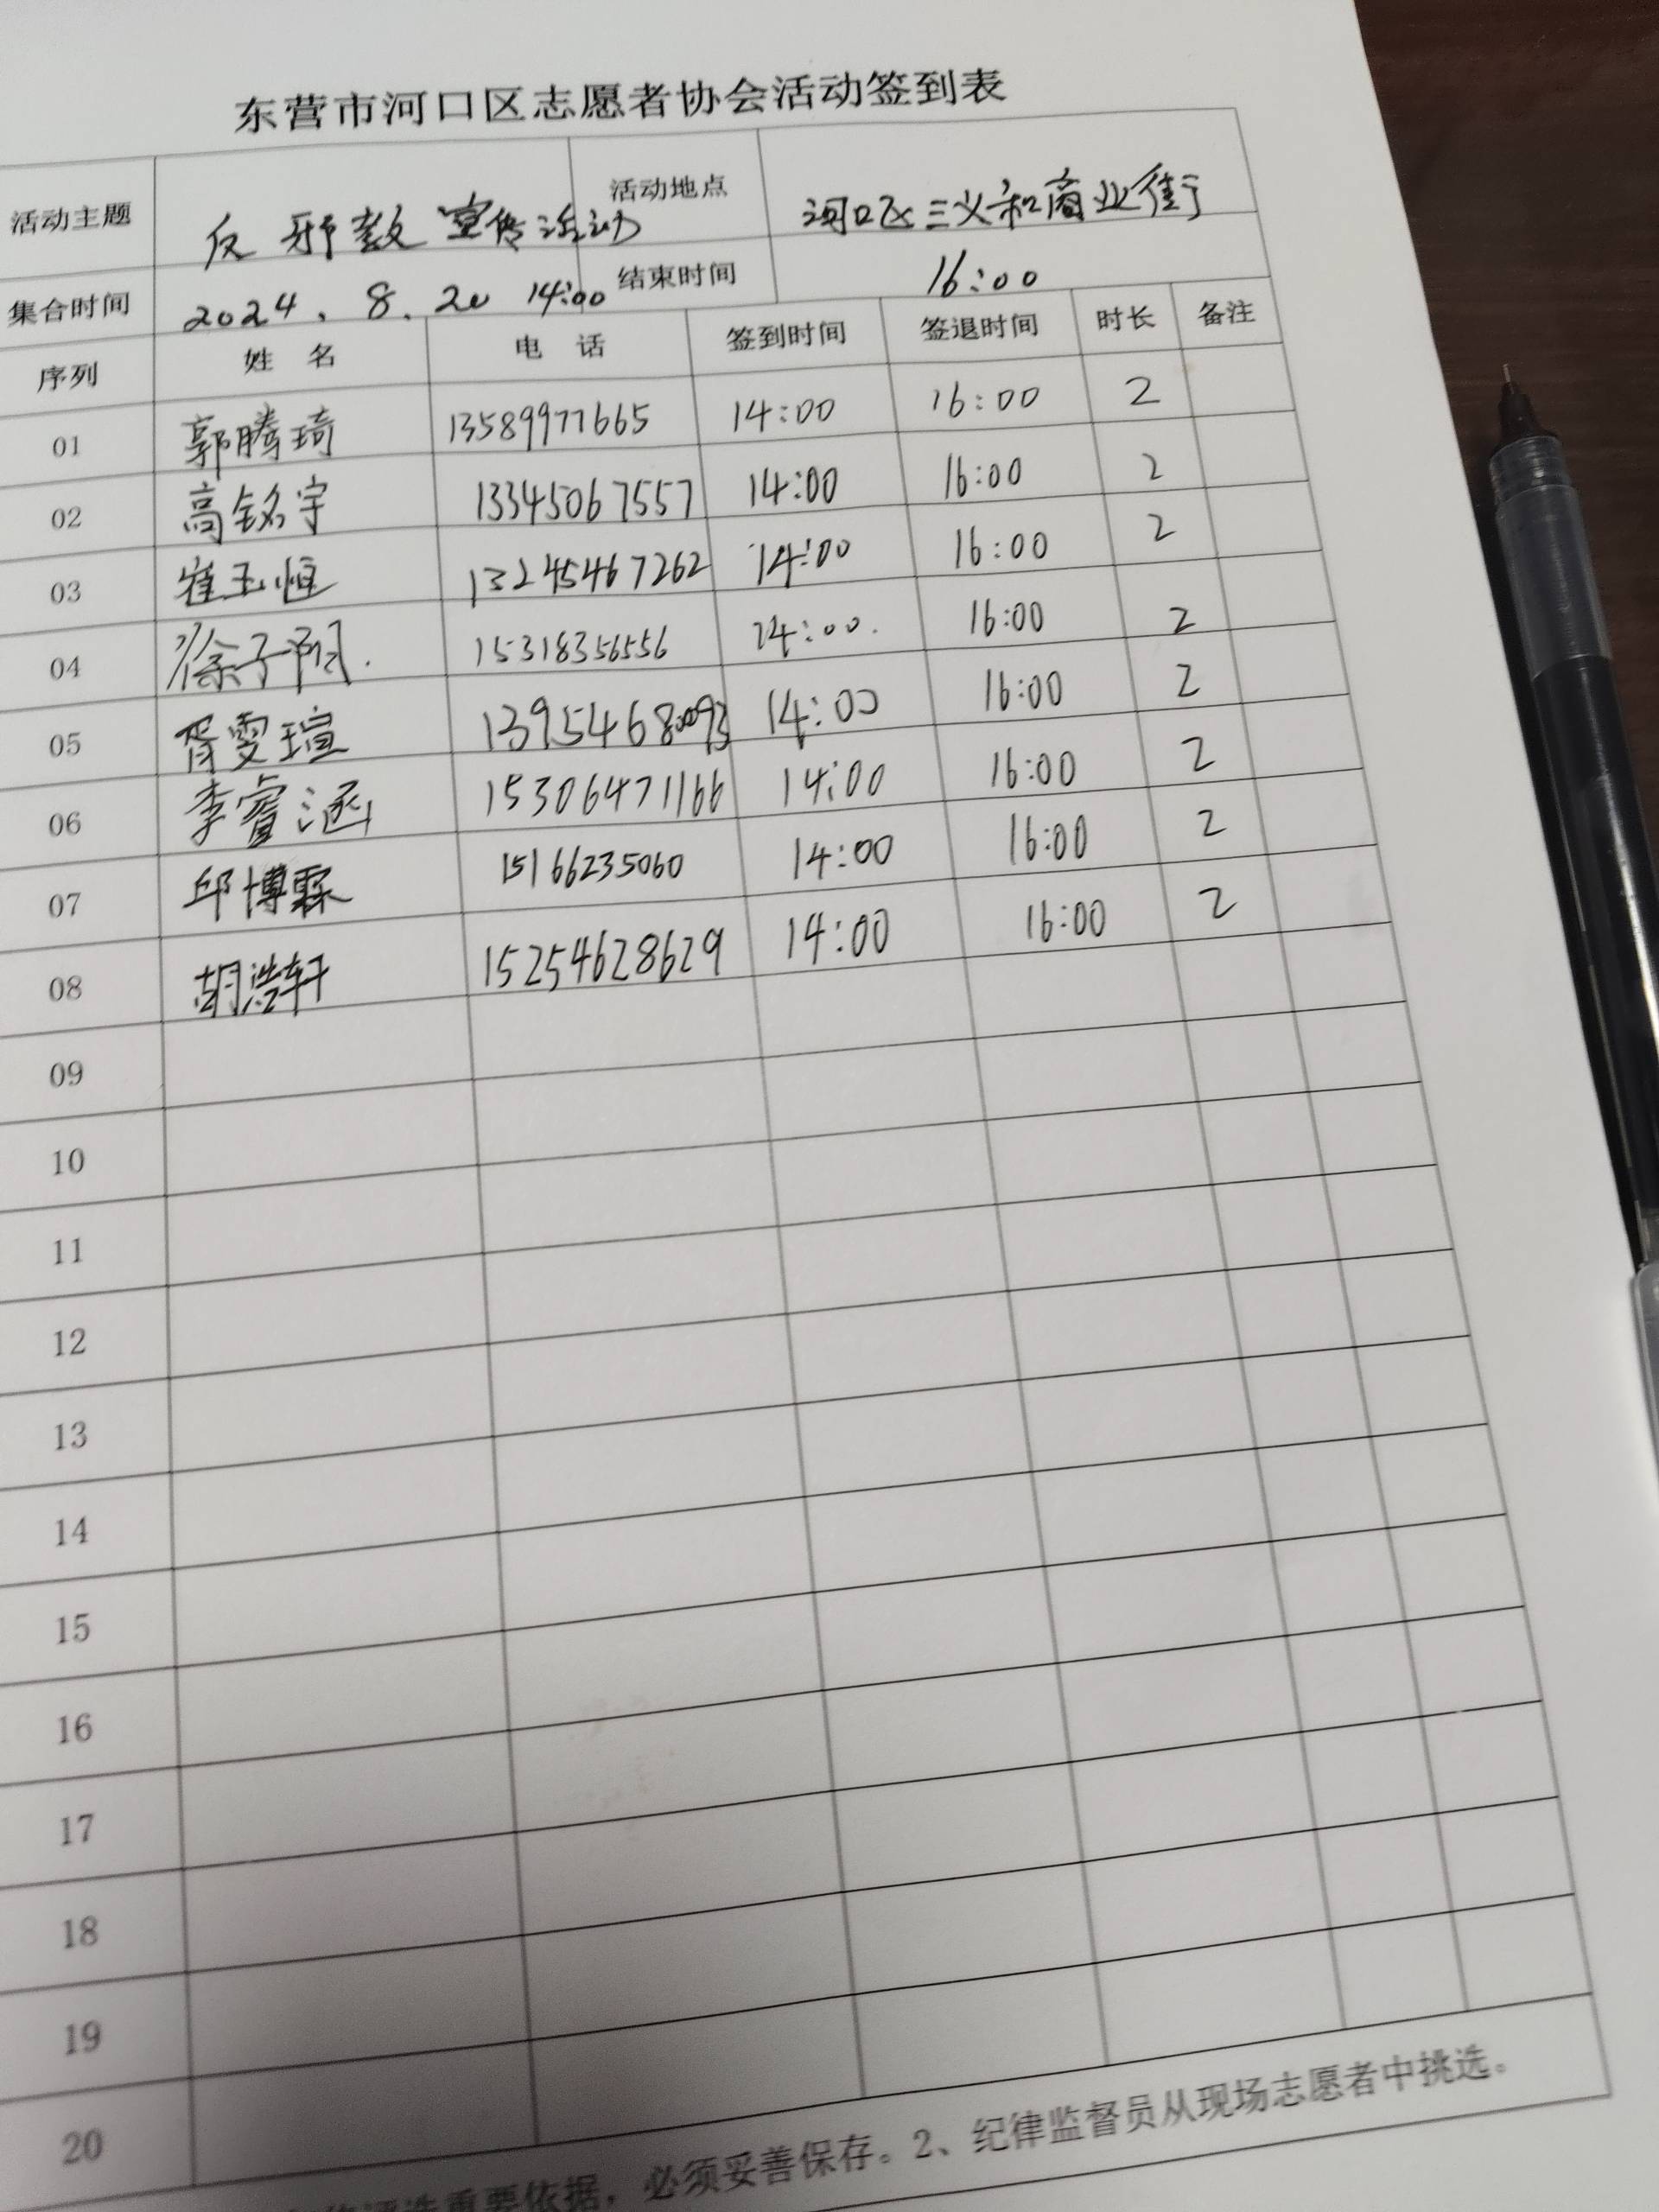 东营市河口区志愿者协会活动签到表
活动主题 反邪教宣传活动 活动地点 河口区三义和商业街
集合时间 2024.8.20 14:00 结束时间 16:00
序列 姓名 电话 签到时间 签退时间 时长 备注
01 郭腾琦 13589977665 14:00 16:00 2
02 高铭宇 13345067557 14:00 16:00 2
03 崔玉恒 13245467262 14:00 16:00 2
04 徐子 15318356556 14:00. 16:00 2
05 胥雯瑄 1395468 14:00 16:00 2
06 李睿涵 15306471166 14:00 16:00 2
07 邱博霖 15166235060 14:00 16:00 2
08 胡浩轩 15254628629 14:00 16:00 2
09
10
11
12
13
14
15
16
17
18
19
20
重要依据，必须妥善保存。2、纪律监督员从现场志愿者中挑选。